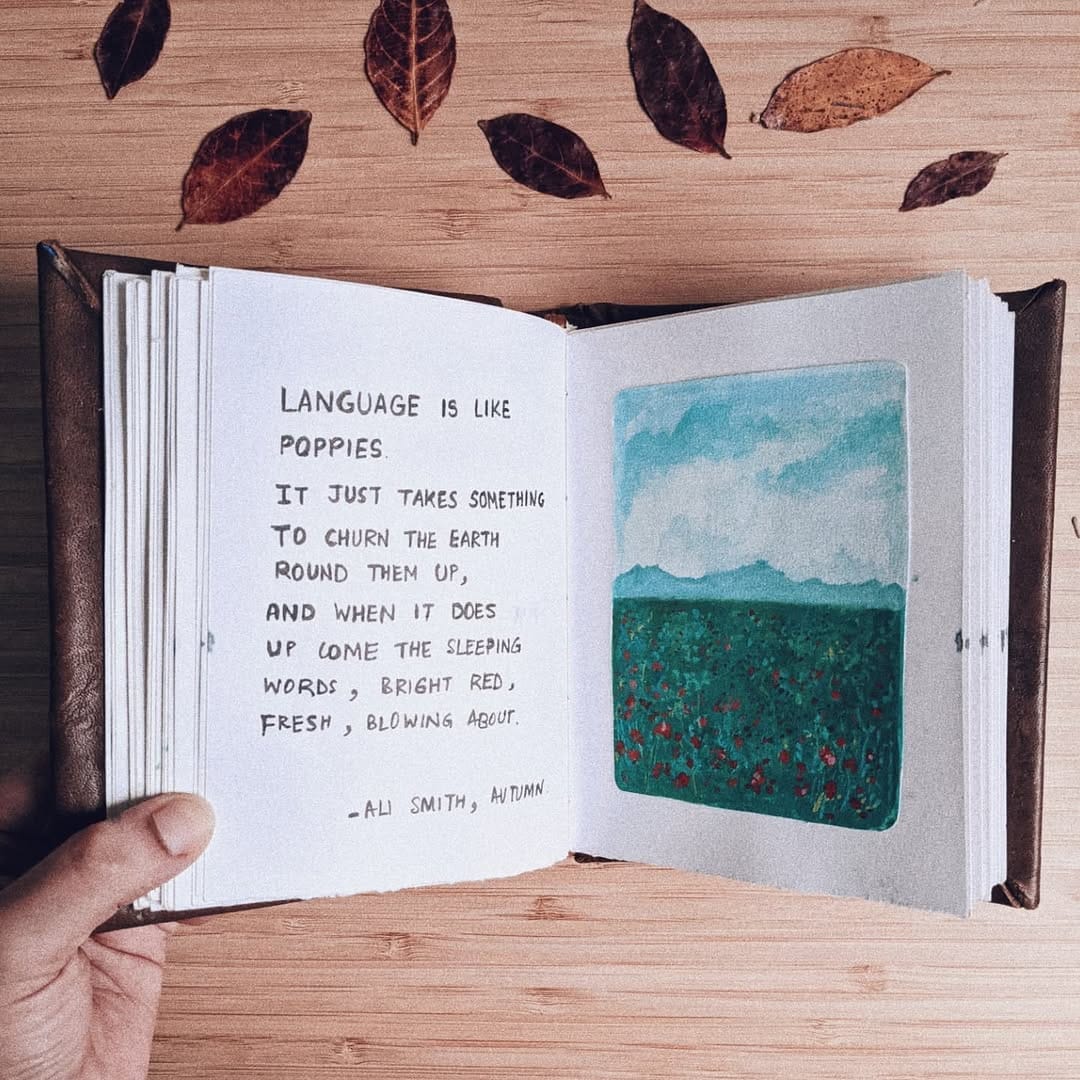 LANGUAGE IS LIKE
POPPIES.
IT JUST TAKES SOMETHING
TO CHURN THE EARTH
ROUND THEM UP,
AND WHEN IT DOES
UP COME THE SLEEPING
WORDS, BRIGHT RED,
FRESH, BLOWING ABOUT.
-ALI SMITH, AUTUMN.